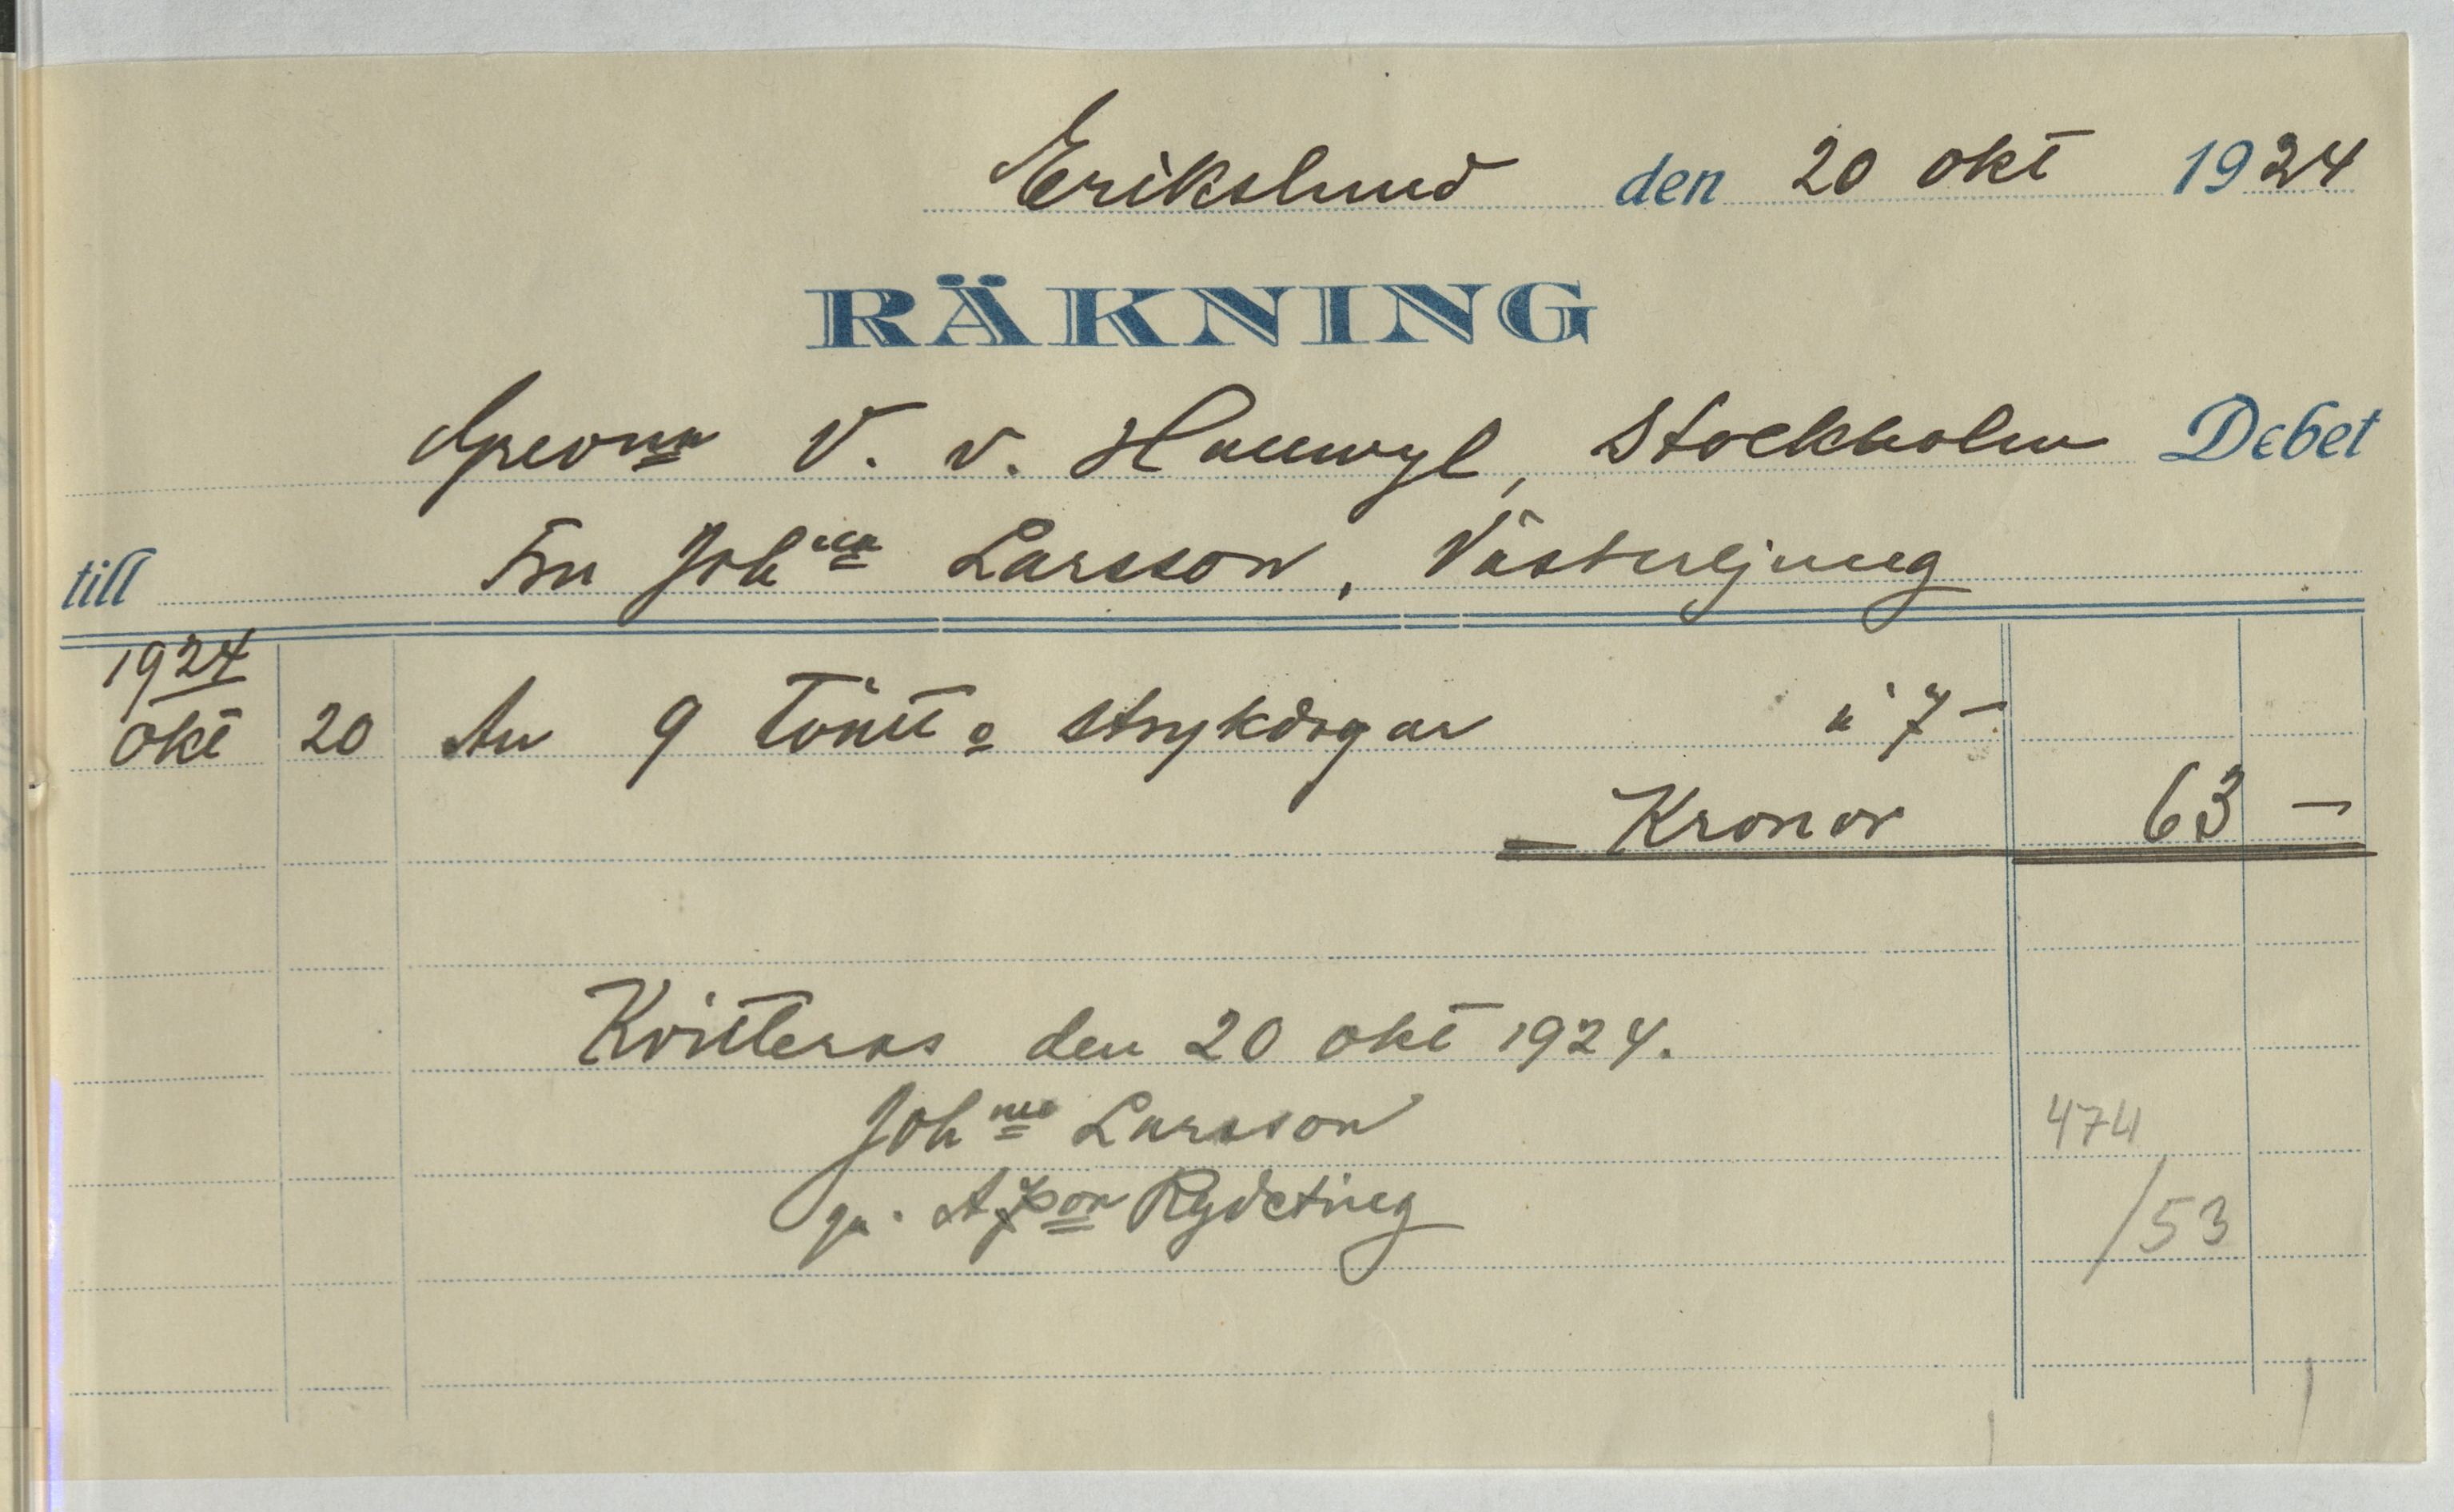 Erikslund den 20 okt 1924
RÄKNING
Grevinn V. v. Hallwyl, Stockholm Debet
till Fru Joh^na Larsson, Västerljung
1924
okt 20 An 9 tvätt o strykdagar à 7 –
Kronor 63 –
Kvitteras den 20 okt 1924.
Joh^na Larsson
474
gm. Rydeting
/53